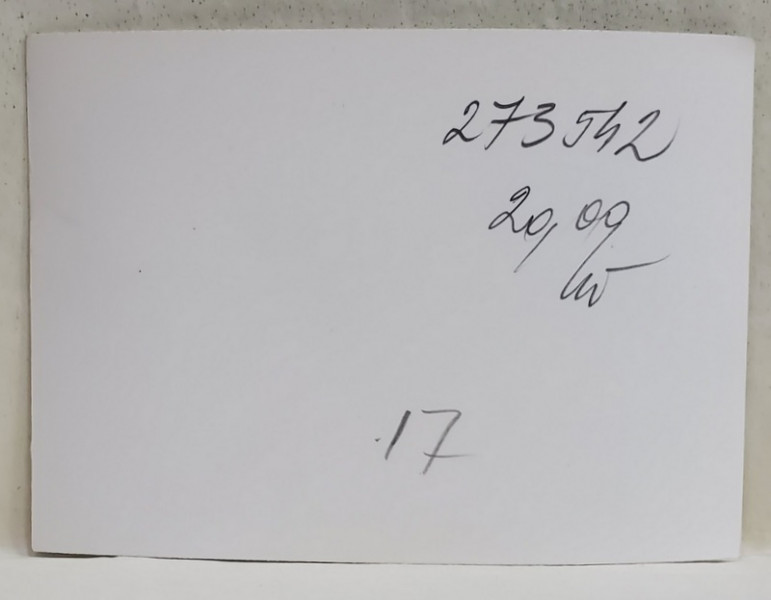 273542
20,09
17